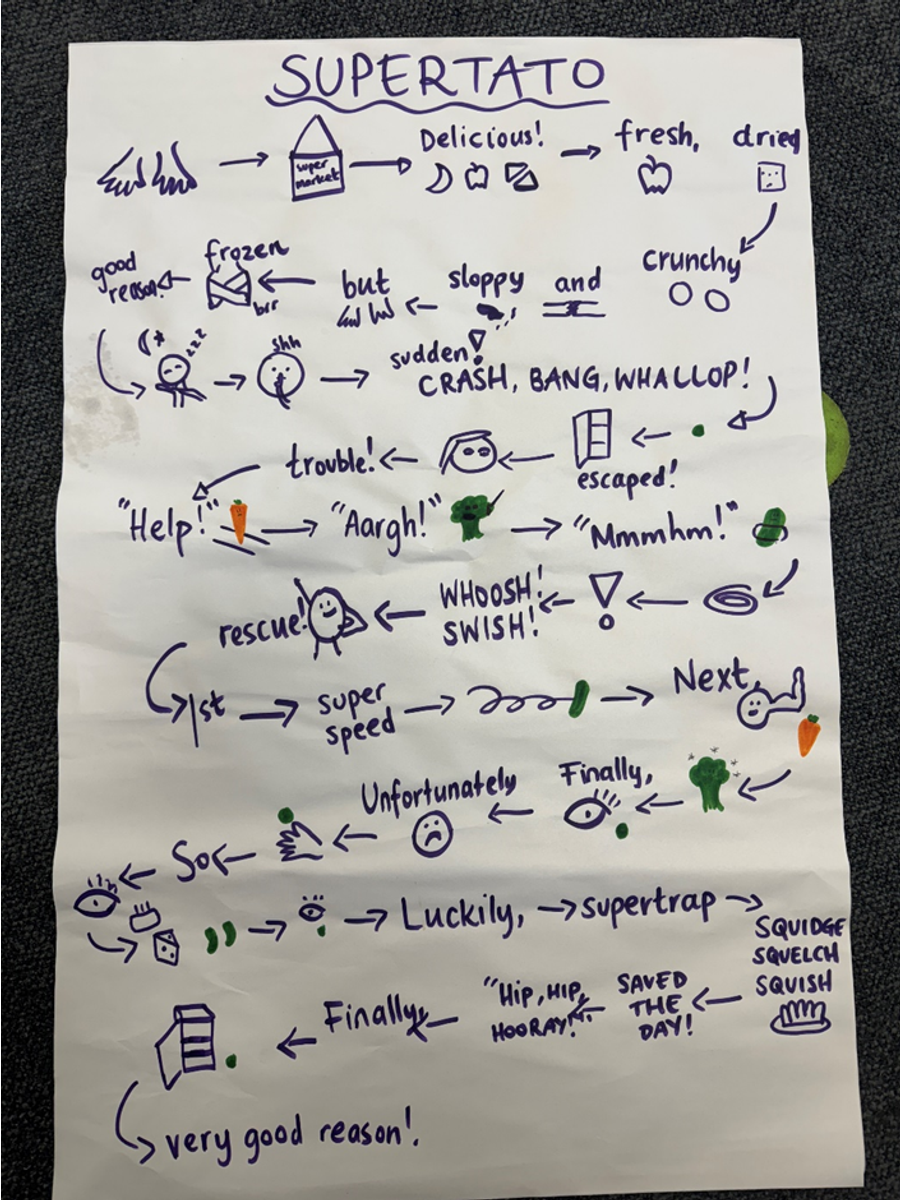 SUPERTATO
super market
Delicious!
fresh,
dried
crunchy
and
sloppy
but
frozen
brr
good reason!
zzz
shh
sudden!
CRASH, BANG, WHALLOP!
escaped!
trouble!
"Help!"
"Aargh!"
"Mmmhm!"
WHOOSH!
SWISH!
rescue!
1st
super speed
Next,
Finally,
Unfortunately
So
Luckily,
supertrap
SQUIDGE
SQUELCH
SQUISH
SAVED
THE
DAY!
"HIP, HIP,
HOORAY!"
Finally,
very good reason!